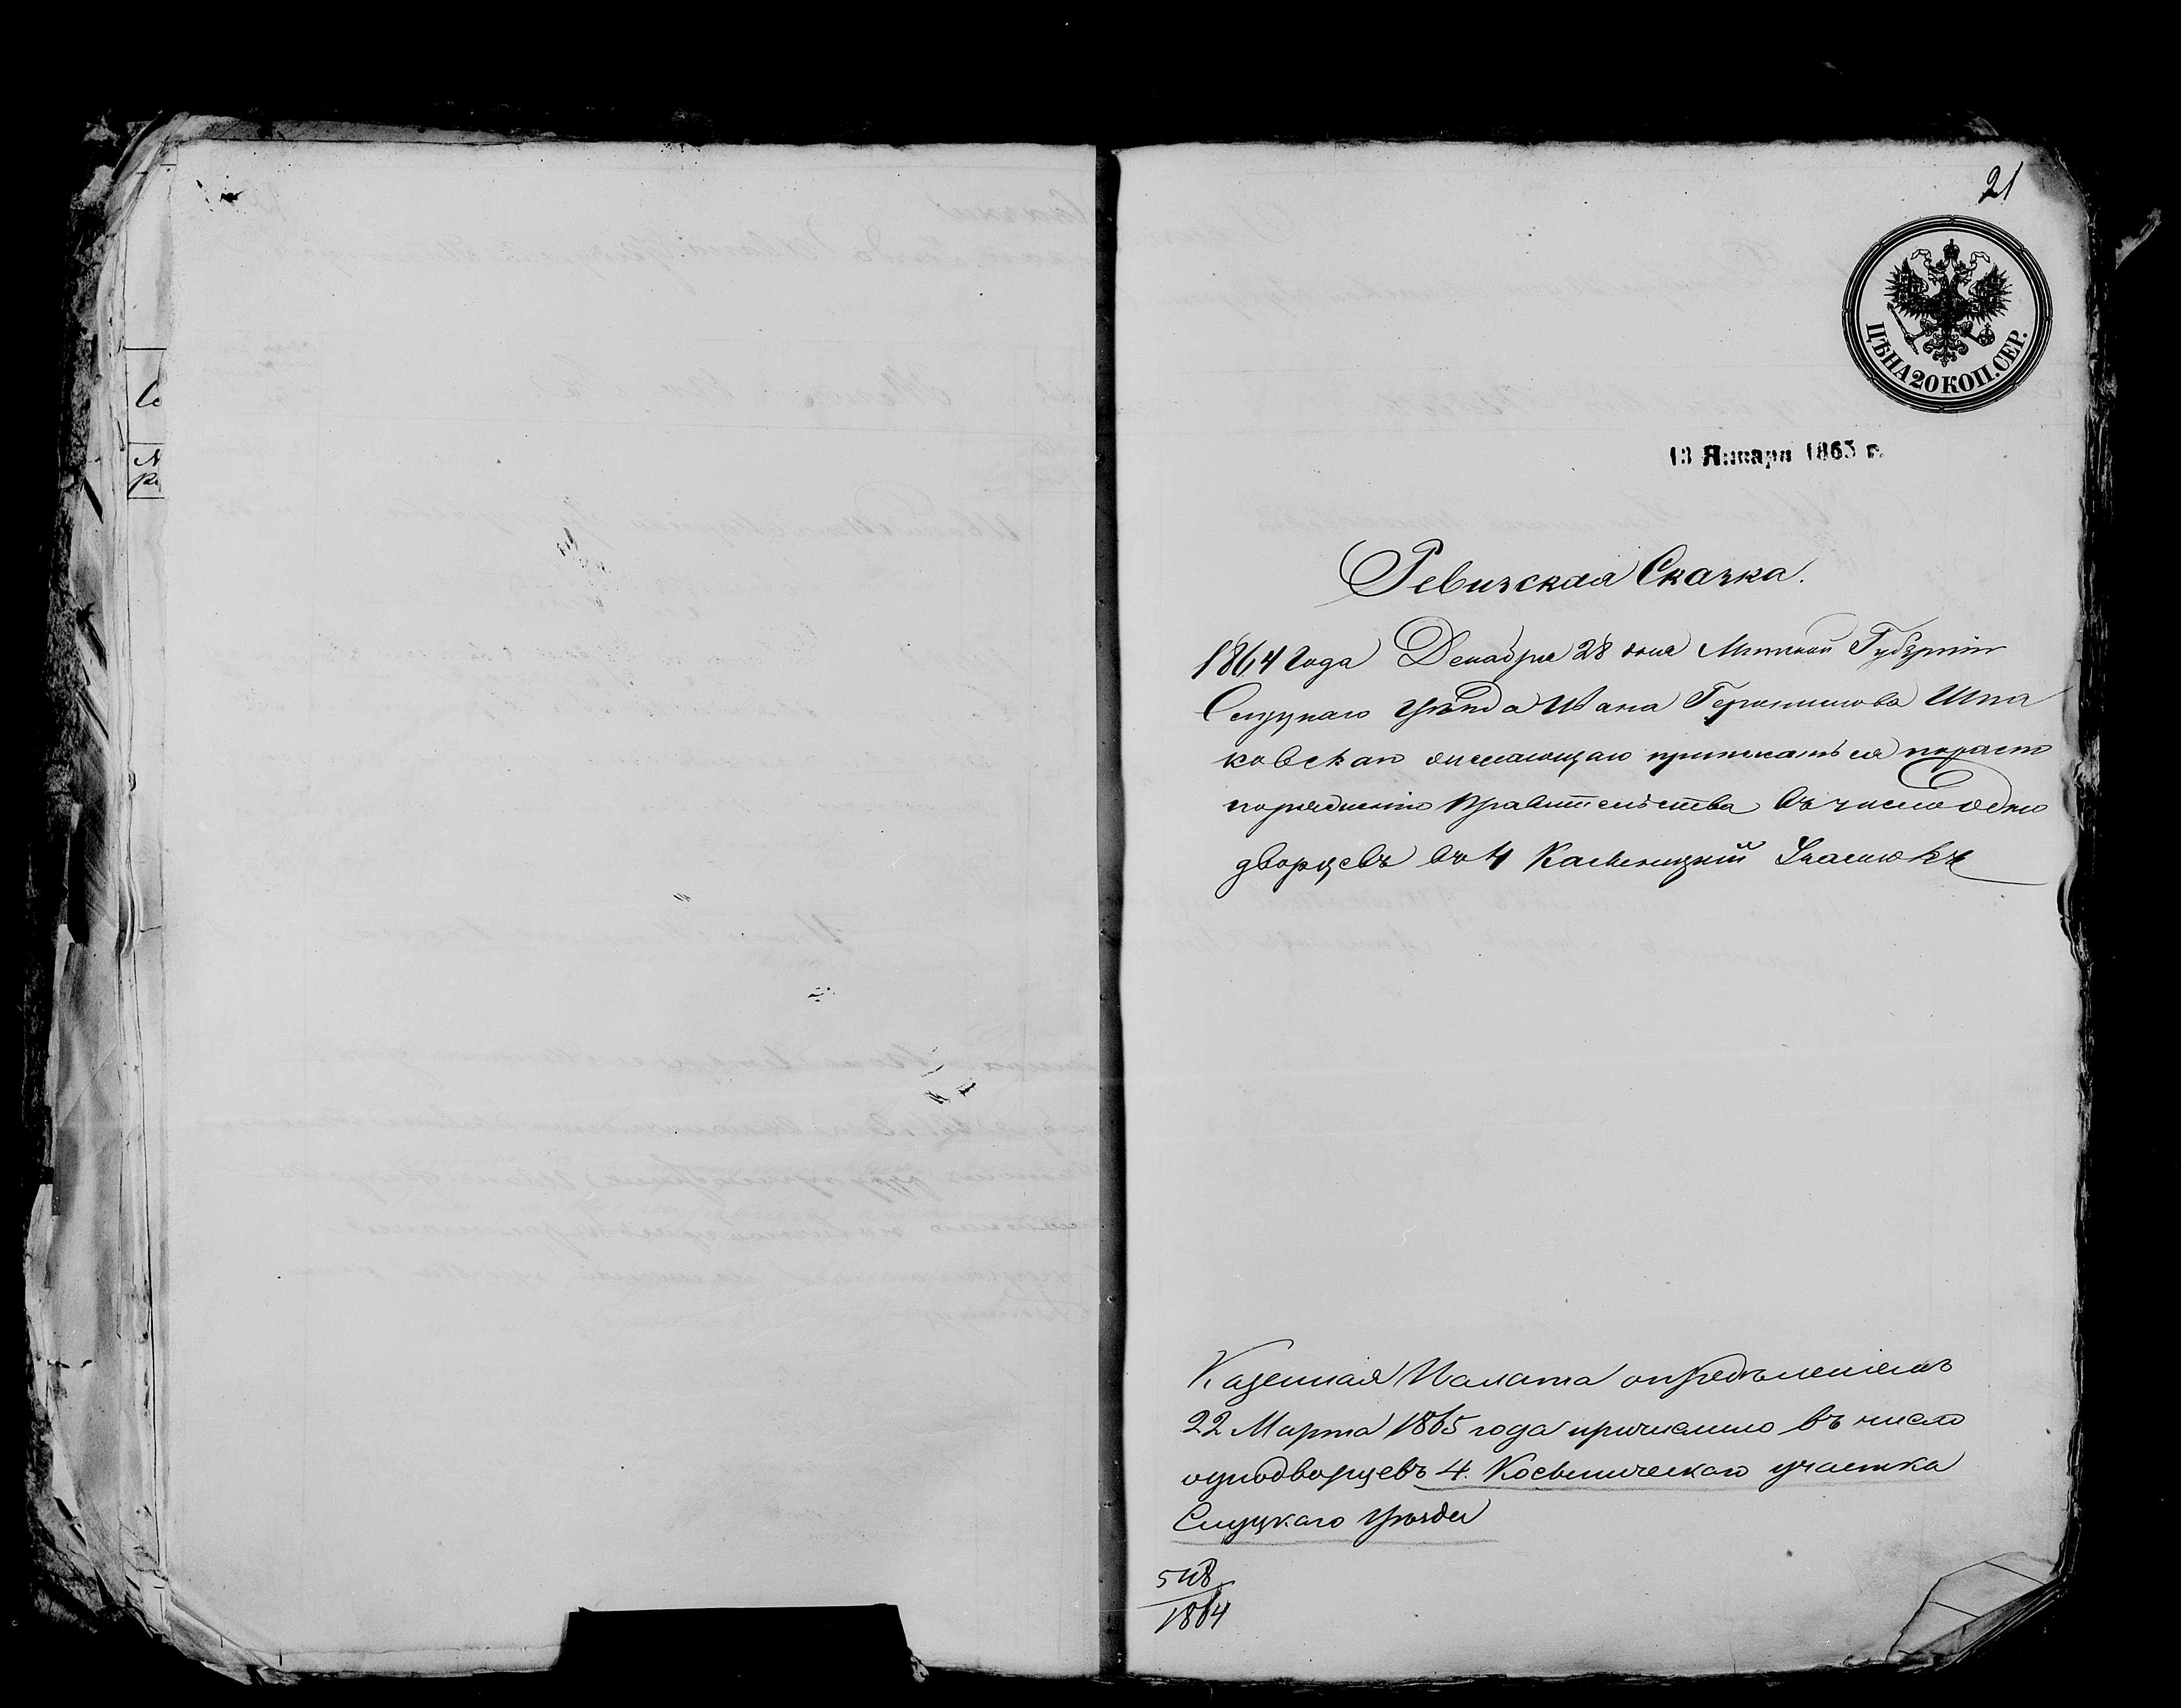 21
ЦѢНА 20 КОП. СЕР.
13 Января 1865 г.
Ревизская Сказка.
1864 Года Декабря 28 дня Минской Губерніи
Слуцкаго Уѣзда Ивана Геронимова Шпа
ковскаго желающаго приписаться по рас
поряженію Правительства въ число Одно
дворцевъ въ 4 Участокъ
Казенная Палата опредѣленіемъ
22 Марта 1865 года причислило въ число
однодворцевъ 4. участка
Слуцкаго Уѣзда
548
1864